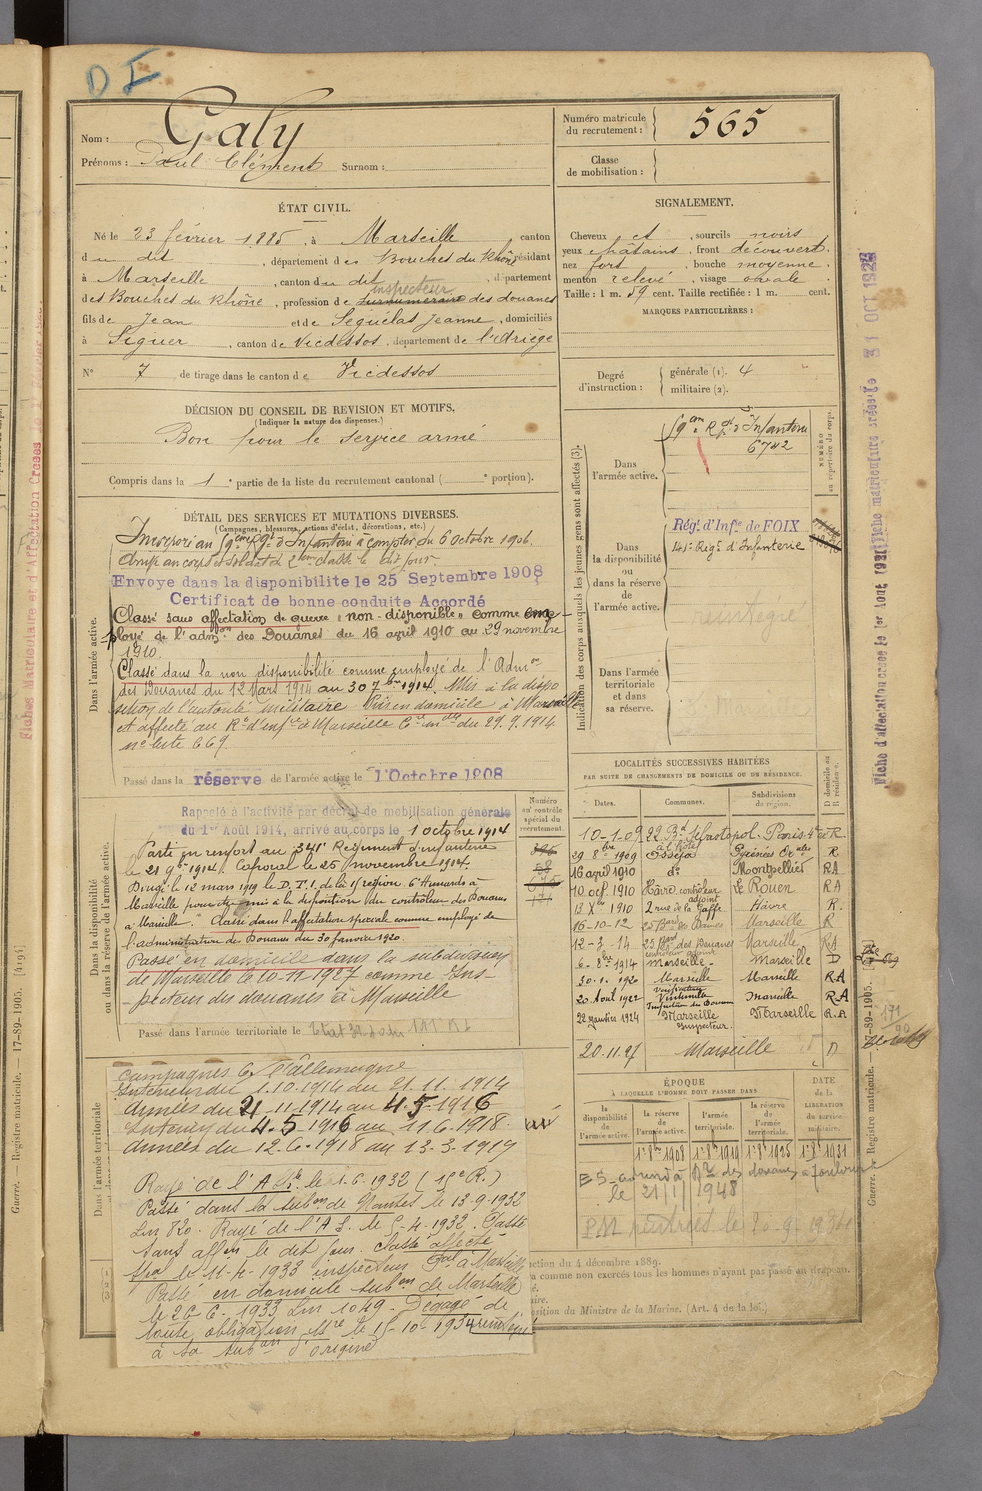 D I
Nom : Galy
Prénoms : Paul Clément Surnom :
Numéro matricule du recrutement : 565
Classe de mobilisation :
ÉTAT CIVIL.
Né le 23 février 1885, à Marseille canton
du dit, département des Bouches du Rhône, résidant
à Marseille, canton du dit, département
inspecteur
des Bouches du Rhône, profession de surnuméraire des douanes
fils de Jean et de Seguélas Jeanne, domiciliés
à Siguer, canton de Vicdessos, département de l'Ariège
N° 7 de tirage dans le canton de Vicdessos
SIGNALEMENT.
Cheveux et, sourcils noirs
yeux châtains, front découvert.
nez fort, bouche moyenne
menton relevé, visage ovale
Taille : 1 m. 59 cent. Taille rectifiée : 1 m. cent.
MARQUES PARTICULIÈRES :
Degré d'instruction : générale (1). 4
militaire (2).
DÉCISION DU CONSEIL DE REVISION ET MOTIFS.
(Indiquer la nature des dispenses.)
Bon pour le service armé
Compris dans la 1e partie de la liste du recrutement cantonal ( e portion).
DÉTAIL DES SERVICES ET MUTATIONS DIVERSES.
(Campagnes, blessures, actions d'éclat, décorations, etc.)
Dans l'armée active.
Incorporé au 59ème Rgt d'Infanterie à compter du 6 Octobre 1906.
Arrivé au corps et soldat de 2ème classe le dit jour.
Envoyé dans la disponibilité le 25 Septembre 1908
Certificat de bonne conduite Accordé
Classé sans affectation de guerre "non-disponible" comme em-
ployé de l'admon des Douanes du 16 avril 1910 au 29 novembre
1910.
Classé dans la non disponibilité comme employé de l'Admon
des Douanes du 12 Mars 1914 au 30 7bre 1914. Mis à la dispo
sition de l'autorité militaire. Fixé en domicile à Marseille
et affecté au Rt d'Infie à Marseille Cel mlle du 29.9.1914
n° liste 669.
Passé dans la réserve de l'armée active le 1 Octobre 1908
Dans la disponibilité ou dans la réserve de l'armée active.
Rappelé à l'activité par décret de mobilisation générale
du 1er Août 1914, arrivé au corps le 1 octobre 1914
Parti en renfort au 341e Régiment d'infanterie
le 21 9bre 1914. Caporal le 25 novembre 1914.
Dirigé le 12 mars 1919 le D.T.I. de la 15 région. 6e échelon à
Marseille pour être mis à la disposition du contrôleur des Douanes
à Marseille. Classé dans l'affectation spéciale comme employé de
l'administration des Douanes du 30 Janvier 1920.
Passé en domicile dans la subdivision
de Marseille le 10-11-1927 comme Ins-
pecteur des douanes à Marseille
Passé dans l'armée territoriale le
Numéro au contrôle spécial du recrutement.
Dans l'armée territoriale
Campagnes C/ l'Allemagne
Intérieur du 1.10.1914 au 21.11.1914
Armées du 21-11-1914 au 4.5-1916
Intérieur du 4.5-1916 au 11.6.1918
Armées du 12.6-1918 au 12-3-1919
Rayé de l'A. Sle le 1.6.1932 (15e R.)
Passé dans la subon de Nantes le 13-9-1932
Lm 820. Rayé de l'A S. le 5-4-1932. Passé
sans affon le dit jour. Classé affecté
spal le 11-4-1933 inspecteur Pal à Marseille
Passé en domicile subon de Marseille
le 26-6-1933 Lm 1049. Dégagé de
toute obligation mre le 15-10-1934
à sa subon d'origine
Indication des corps auxquels les jeunes gens sont affectés (3).
Dans l'armée active.
59eme Rgt d'Infanterie
6742
NUMÉRO au répertoire du corps.
Dans la disponibilité ou dans la réserve de l'armée active.
Régt d'Infie de FOIX
141e Régt d'Infanterie
réintégré
Dans l'armée territoriale et dans sa réserve.
LOCALITÉS SUCCESSIVES HABITÉES
PAR SUITE DE CHANGEMENTS DE DOMICILE OU DE RÉSIDENCE.
Dates. Communes. Subdivisions de région. D domicile ou R résidence.
10-1-09 22 Bd Sébastopol. Paris. 4e R.
29 8bre 1909 Osséja Pyrénées Orales R
16 avril 1910 do Montpellier RA
10 oct 1910 Havre, contrôleur adjoint Le Rouen RA
13 Xbre 1910 2 rue de la Gaffe Hâvre R.
16-10-12 25 Bard des Dames Marseille R
12-3-14 25 Bard des Douanes Marseille R.A
6-8bre 1914 Marseille - Marseille D
30.1.1920 Marseille Marseille R.A
20 Août 1922 Vérificateur Vintimille Marseille R.A
22 Janvier 1924 Inspecteur des Douanes Marseille Inspecteur. Marseille R.A
20.11.27 Marseille D
ÉPOQUE
À LAQUELLE L'HOMME DOIT PASSER DANS
la disponibilité de l'armée active. la réserve de l'armée active. l'armée territoriale. la réserve de l'armée territoriale.
DATE de la LIBÉRATION du service militaire.
1er 8bre 1908 1er 8bre 1919 1er 8bre 1925 1er 8bre 1931
le 21/1/1948
ction du 4 décembre 1889.
a comme non exercés tous les hommes n'ayant pas passé au drapeau.
osition du Ministre de la Marine. (Art. 4 de la loi.)
Fiche d'affectation créée le 1er Août 1931 Fiche matriculaire créée le 31 OCT 1925
Guerre. — Registre matricule. — 17-89-1905. [4194]
Guerre. Registre matricule. — 17-89-1905.
Fiches Matriculaire et d'Affectation Créées le
171
90